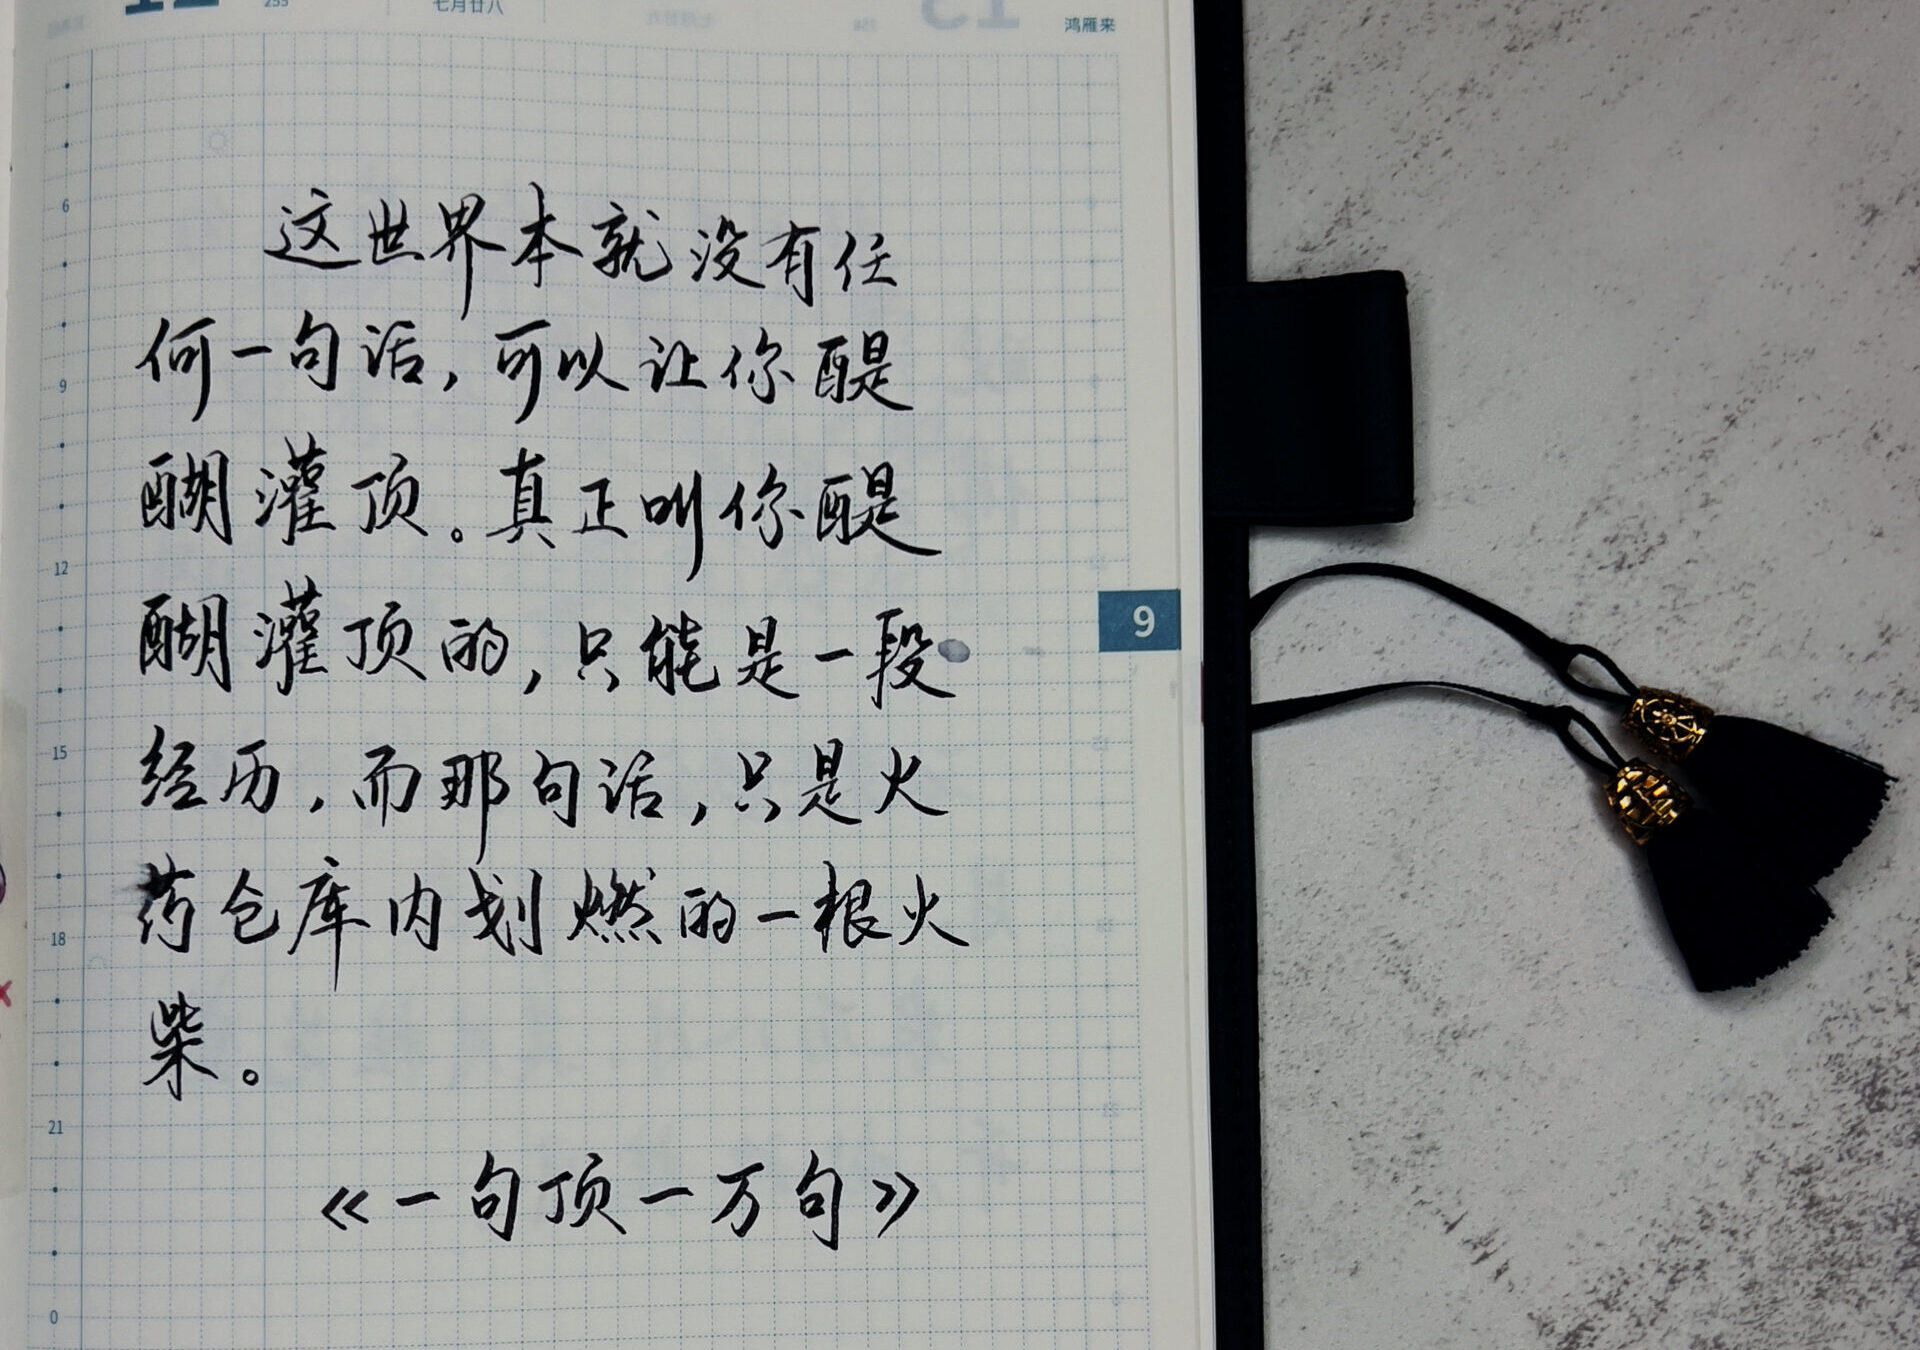 255
七月廿八
鸿雁来
6
这世界本就没有任
9
何一句话，可以让你醍
醐灌顶。真正叫你醍
12
醐灌顶的，只能是一段
9
15
经历，而那句话，只是火
18
药仓库内划燃的一根火
柴。
21
《一句顶一万句》
0